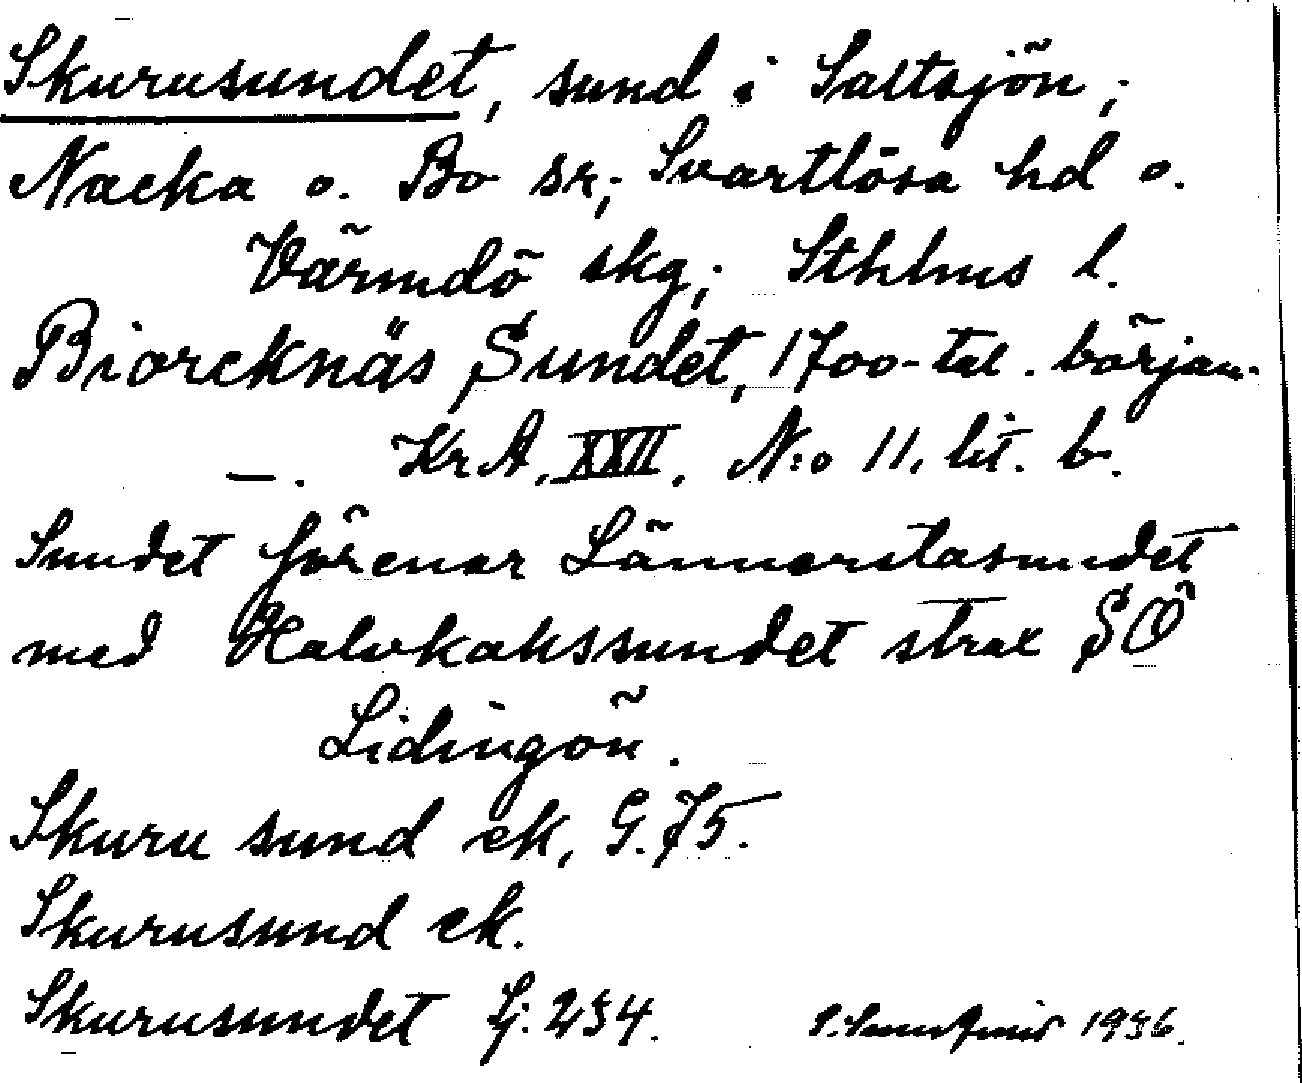 Skurusundet, sund i Saltsjön;
Nacka o. Bo sr; Svartlösa hd o.
Värmdö skg; Sthlms l.
Biorcknäs Sundet, 1700-tal. början.
—. KrA, XXII, N:o 11. lit. b.
Sundet förenar Lännerstasundet
med Halvkakssundet strax SO
Lidingön.
Skuru sund ek, G. 75.
Skurusund ek.
Skurusundet Sj. 234.
1936.